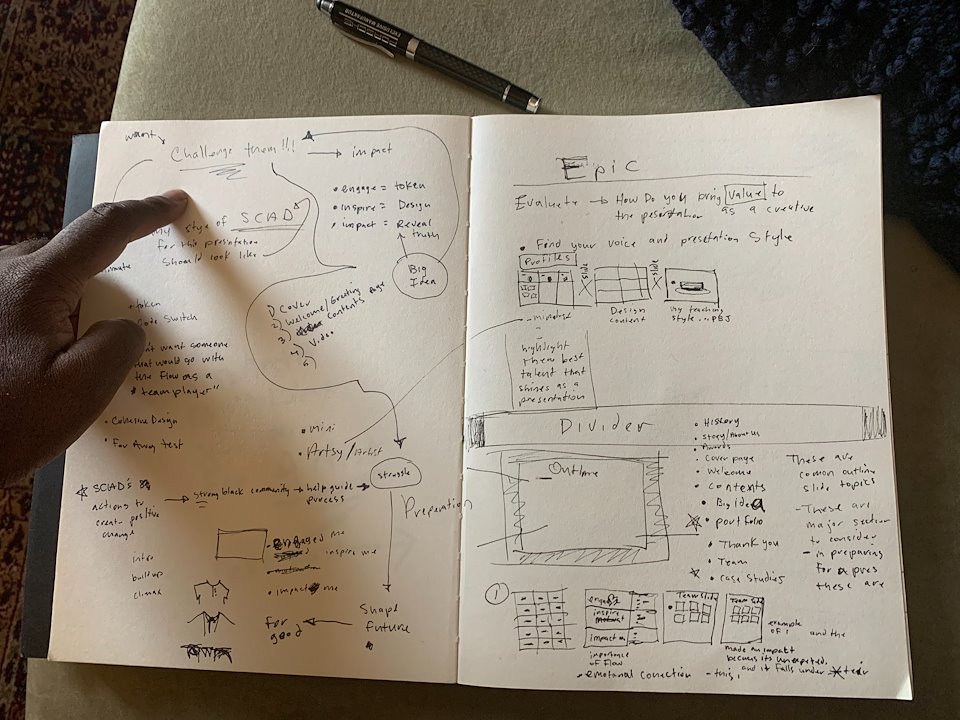 want
Challenge them!!! → impact
• engage = token
• inspire = Design
• impact = Reveal
truth
Big
Idea
style of SCAD
for this presentation
should look like
1) Cover
2) Welcome/Greeting
3) Contents page
4) Video
5)
token
Code Switch
want someone
that would go with
the flow as a
"team player"
• Cohesive Design
• Far Away test
• mini
• Artsy/Artist
struggle
SCAD's
actions to
create positive
change
strong black community → help guide
process
Preparation
• engaged me
inspire me
• impact me
intro
buildup
climax
Shape
future
for
good
Epic
Evaluate → How Do you bring value to
the presentation as a creative
• Find your voice and presentation style
Profiles
slide
slide
Design
content
my teaching
style...PBJ
- mindset
highlight
their best
talent that
shines as a
presentation
Divider
Outline
• History
• Awards
• Cover page
• Welcome
• Contents
• Big idea
• portfolio
• Thank you
• Team
• Case Studies
These are
common outline
slide topics
- These are
major section
to consider
- in preparing
for a pres
these are
1
engage
inspire
impact
importance
of flow
Team Slide
Team Slide
example
of 1
and the
made an impact
becaus its unexpected,
and it falls under their
• emotional connection - this,